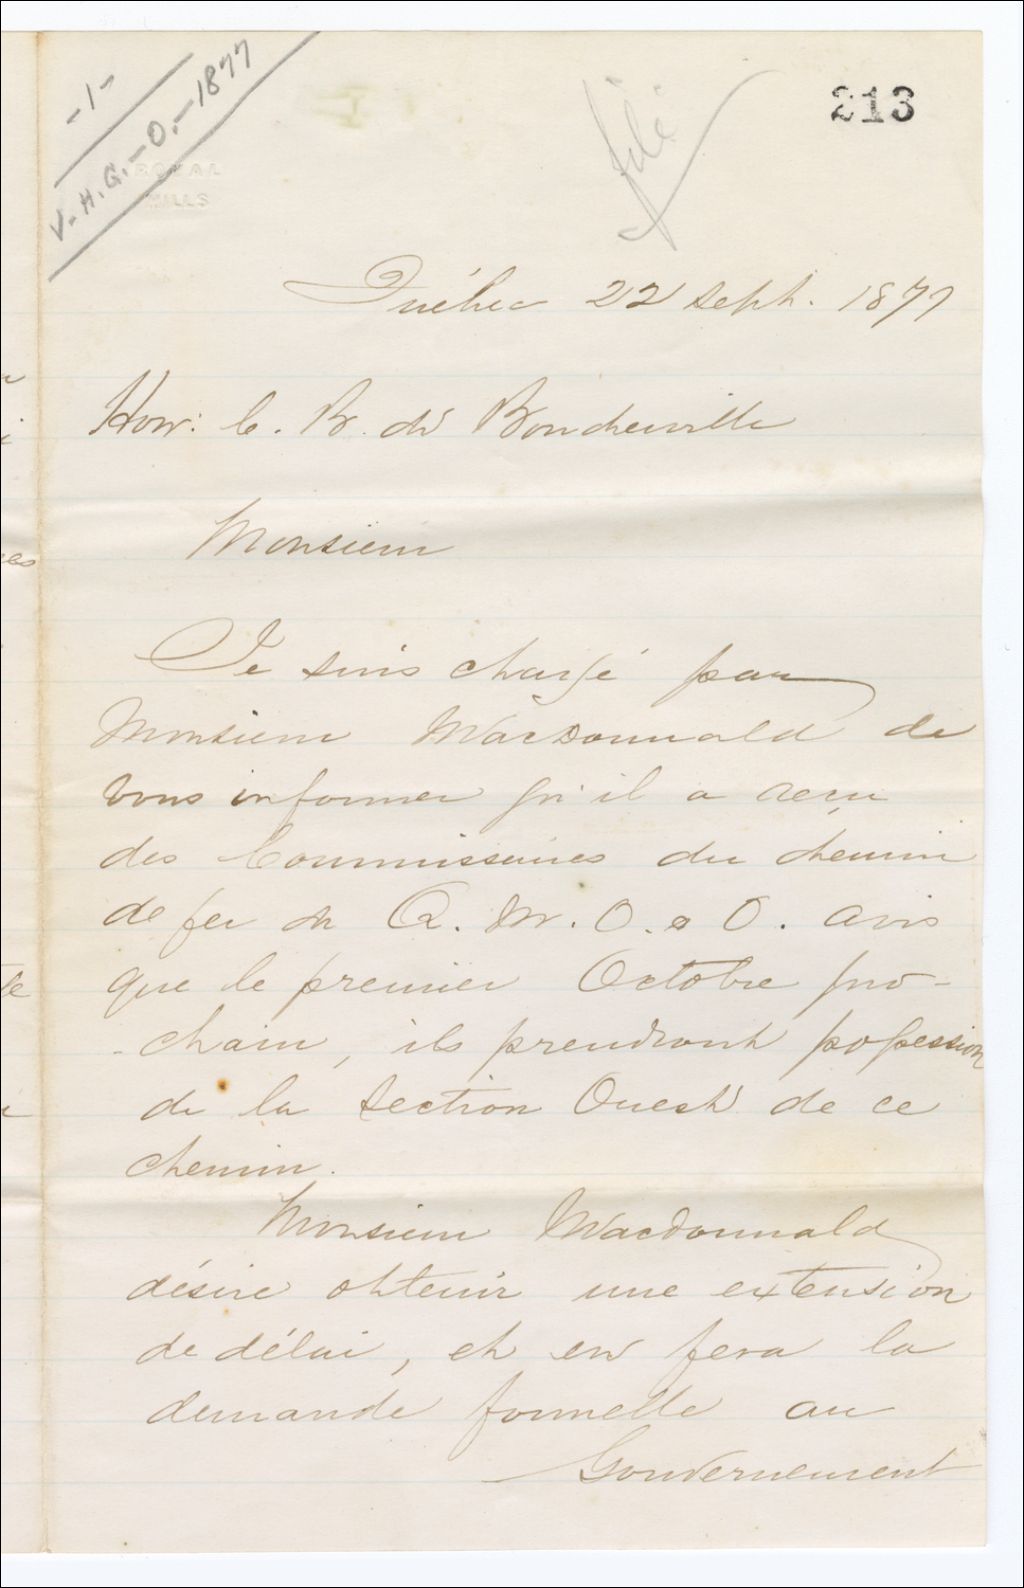 -1-
V-H.G.-O.-1877
ROYAL
MILLS
filé
213
Québec 22 Sept. 1877
Hon: C. B. de Boucherville
Monsieur
Je suis chargé par
Monsieur MacDonnald de
vous informer qu'il a reçu
des Commissaires du chemin
de fer de Q. M. O. & O. avis
que le premier Octobre pro-
-chain, ils prendront possession
de la Section Ouest de ce
chemin.
Monsieur MacDonnald
désire obtenir une extension
de délai, et en fera la
demande formelle au
Gouvernement